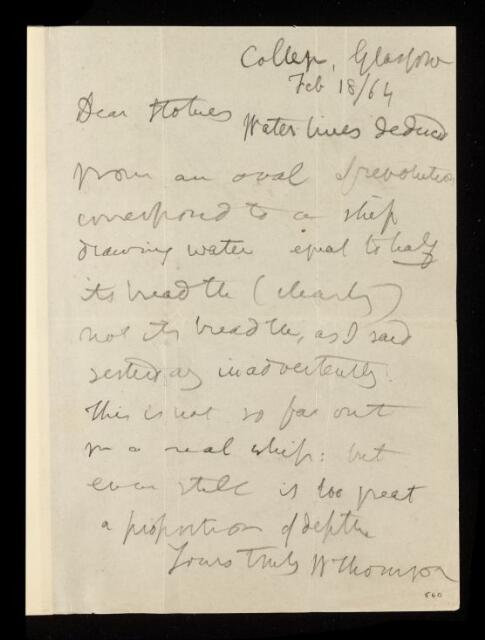 College, Glasgow
Feb 18/64
Dear Stokes
Water lines deduced
from an oval of revolution
correspond to a ship
drawing water equal to half
its breadth (clearly)
not its breadth, as I said
yesterday inadvertently.
This is not so far out
for a real ship: but
even still is too great
a proportion of depth.
Yours truly W Thomson
560